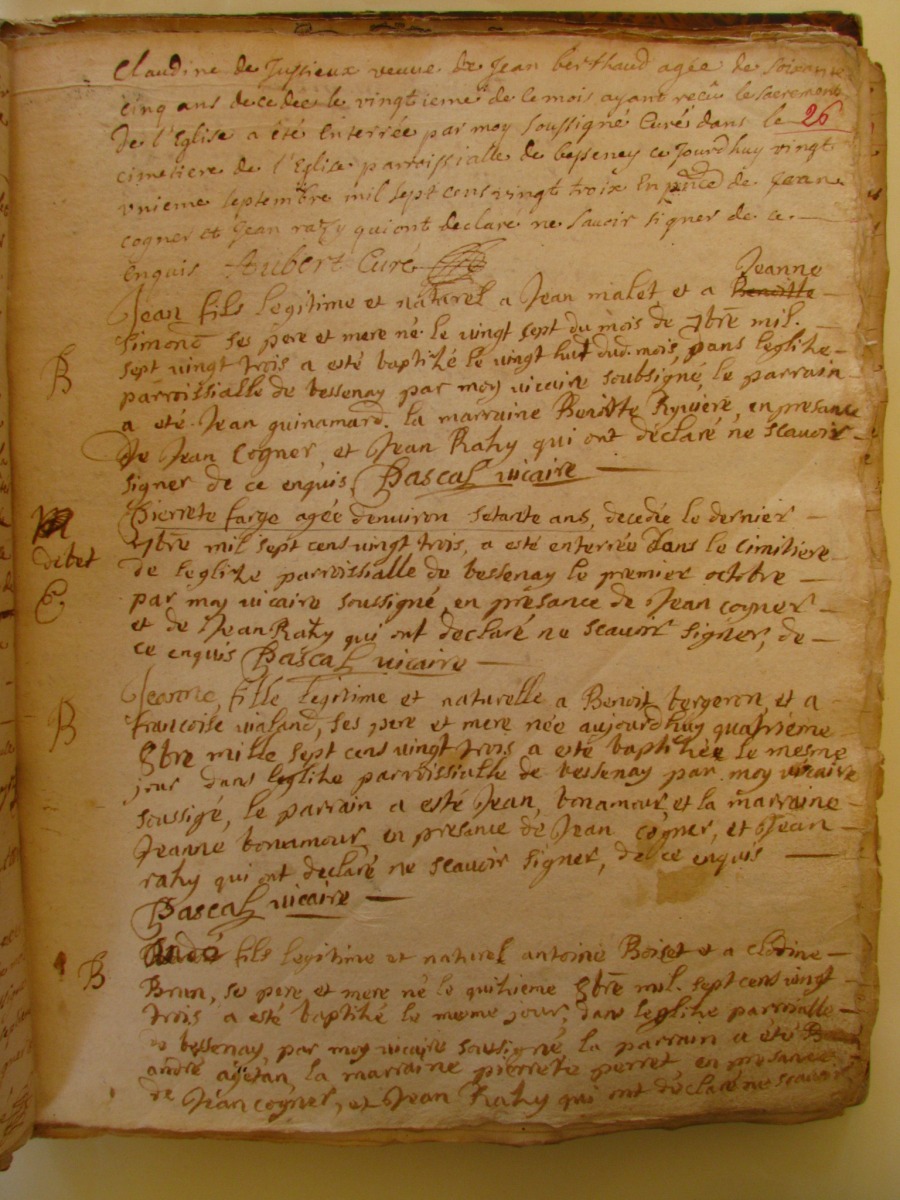 Claudine de Jussieux veuve de Jean berthaud agée de soixante
cinq ans decedée le vingtieme de ce mois ayant recu le sacrement
de l'Eglise a été Enterrée par moy soussigné Curé dans le
26
cimetiere de l'Eglise parroissialle de bessenay ce jourdhuy vingt
unieme septembre mil sept cens vingt troix En pñce de Jean
cogner et Jean razy qui ont declaré ne savoir signer de ce
enquis Aubert Curé
Jeanne
Jean fils legitime et naturel a Jean malet et a Benoitte
Simond ses pere et mere né le vingt sept du mois de 7bre mil
B
sept vingt trois a esté baptizé le vingt huit dud. mois, dans leglize
parroissialle de bessenay par moy vicaire soubsigné, le parrain
a eté Jean guinamard. la marraine Benoitte Ryviere, en presance
de Jean Cogner, et Jean Razy qui ont déclaré ne scavoir
signer de ce enquis, Pascal vicaire
Pierrete farge agée denviron setante ans, decedée le dernier
7bre mil sept cens vingt trois, a esté enterrée dans le cimitiere
debet
de leglize parroissialle de bessenay le premier octobre
E
par moy vicaire soussigné, en présance de Jean cogner
et de Jean Razy qui ont declaré ne scavoir signer, de
ce enquis Pascal vicaire
Jeanne fille legitime et naturelle a Benoit bergeron, et a
B
francoise vialand, ses pere et mere née aujourdhuy quatrieme
8bre mille sept cens vingt trois a esté baptizée le mesme
jour dans leglize parroissialle de bessenay par moy vicaire
soussigé, le parrain a esté Jean, bonamour, et la marraine
Jeanne bonamour, en presance de Jean cogner, et Jean
razy qui ont declaré ne scavoir signer, de ce enquis
Pascal vicaire
André fils legitime et naturel antoine Boiset et a clodine
B
Brun, se pere et mere né le quinzieme 8bre mil sept cens vingt
trois a esté baptizé le meme jour, dans leglize parroialle
bessenay, par moy vicaire soussigné la parrain a eté
andré la marraine pierrete perret en presance
de Jean cogner, et Jean Razy qui ont déclaré ne scavoir